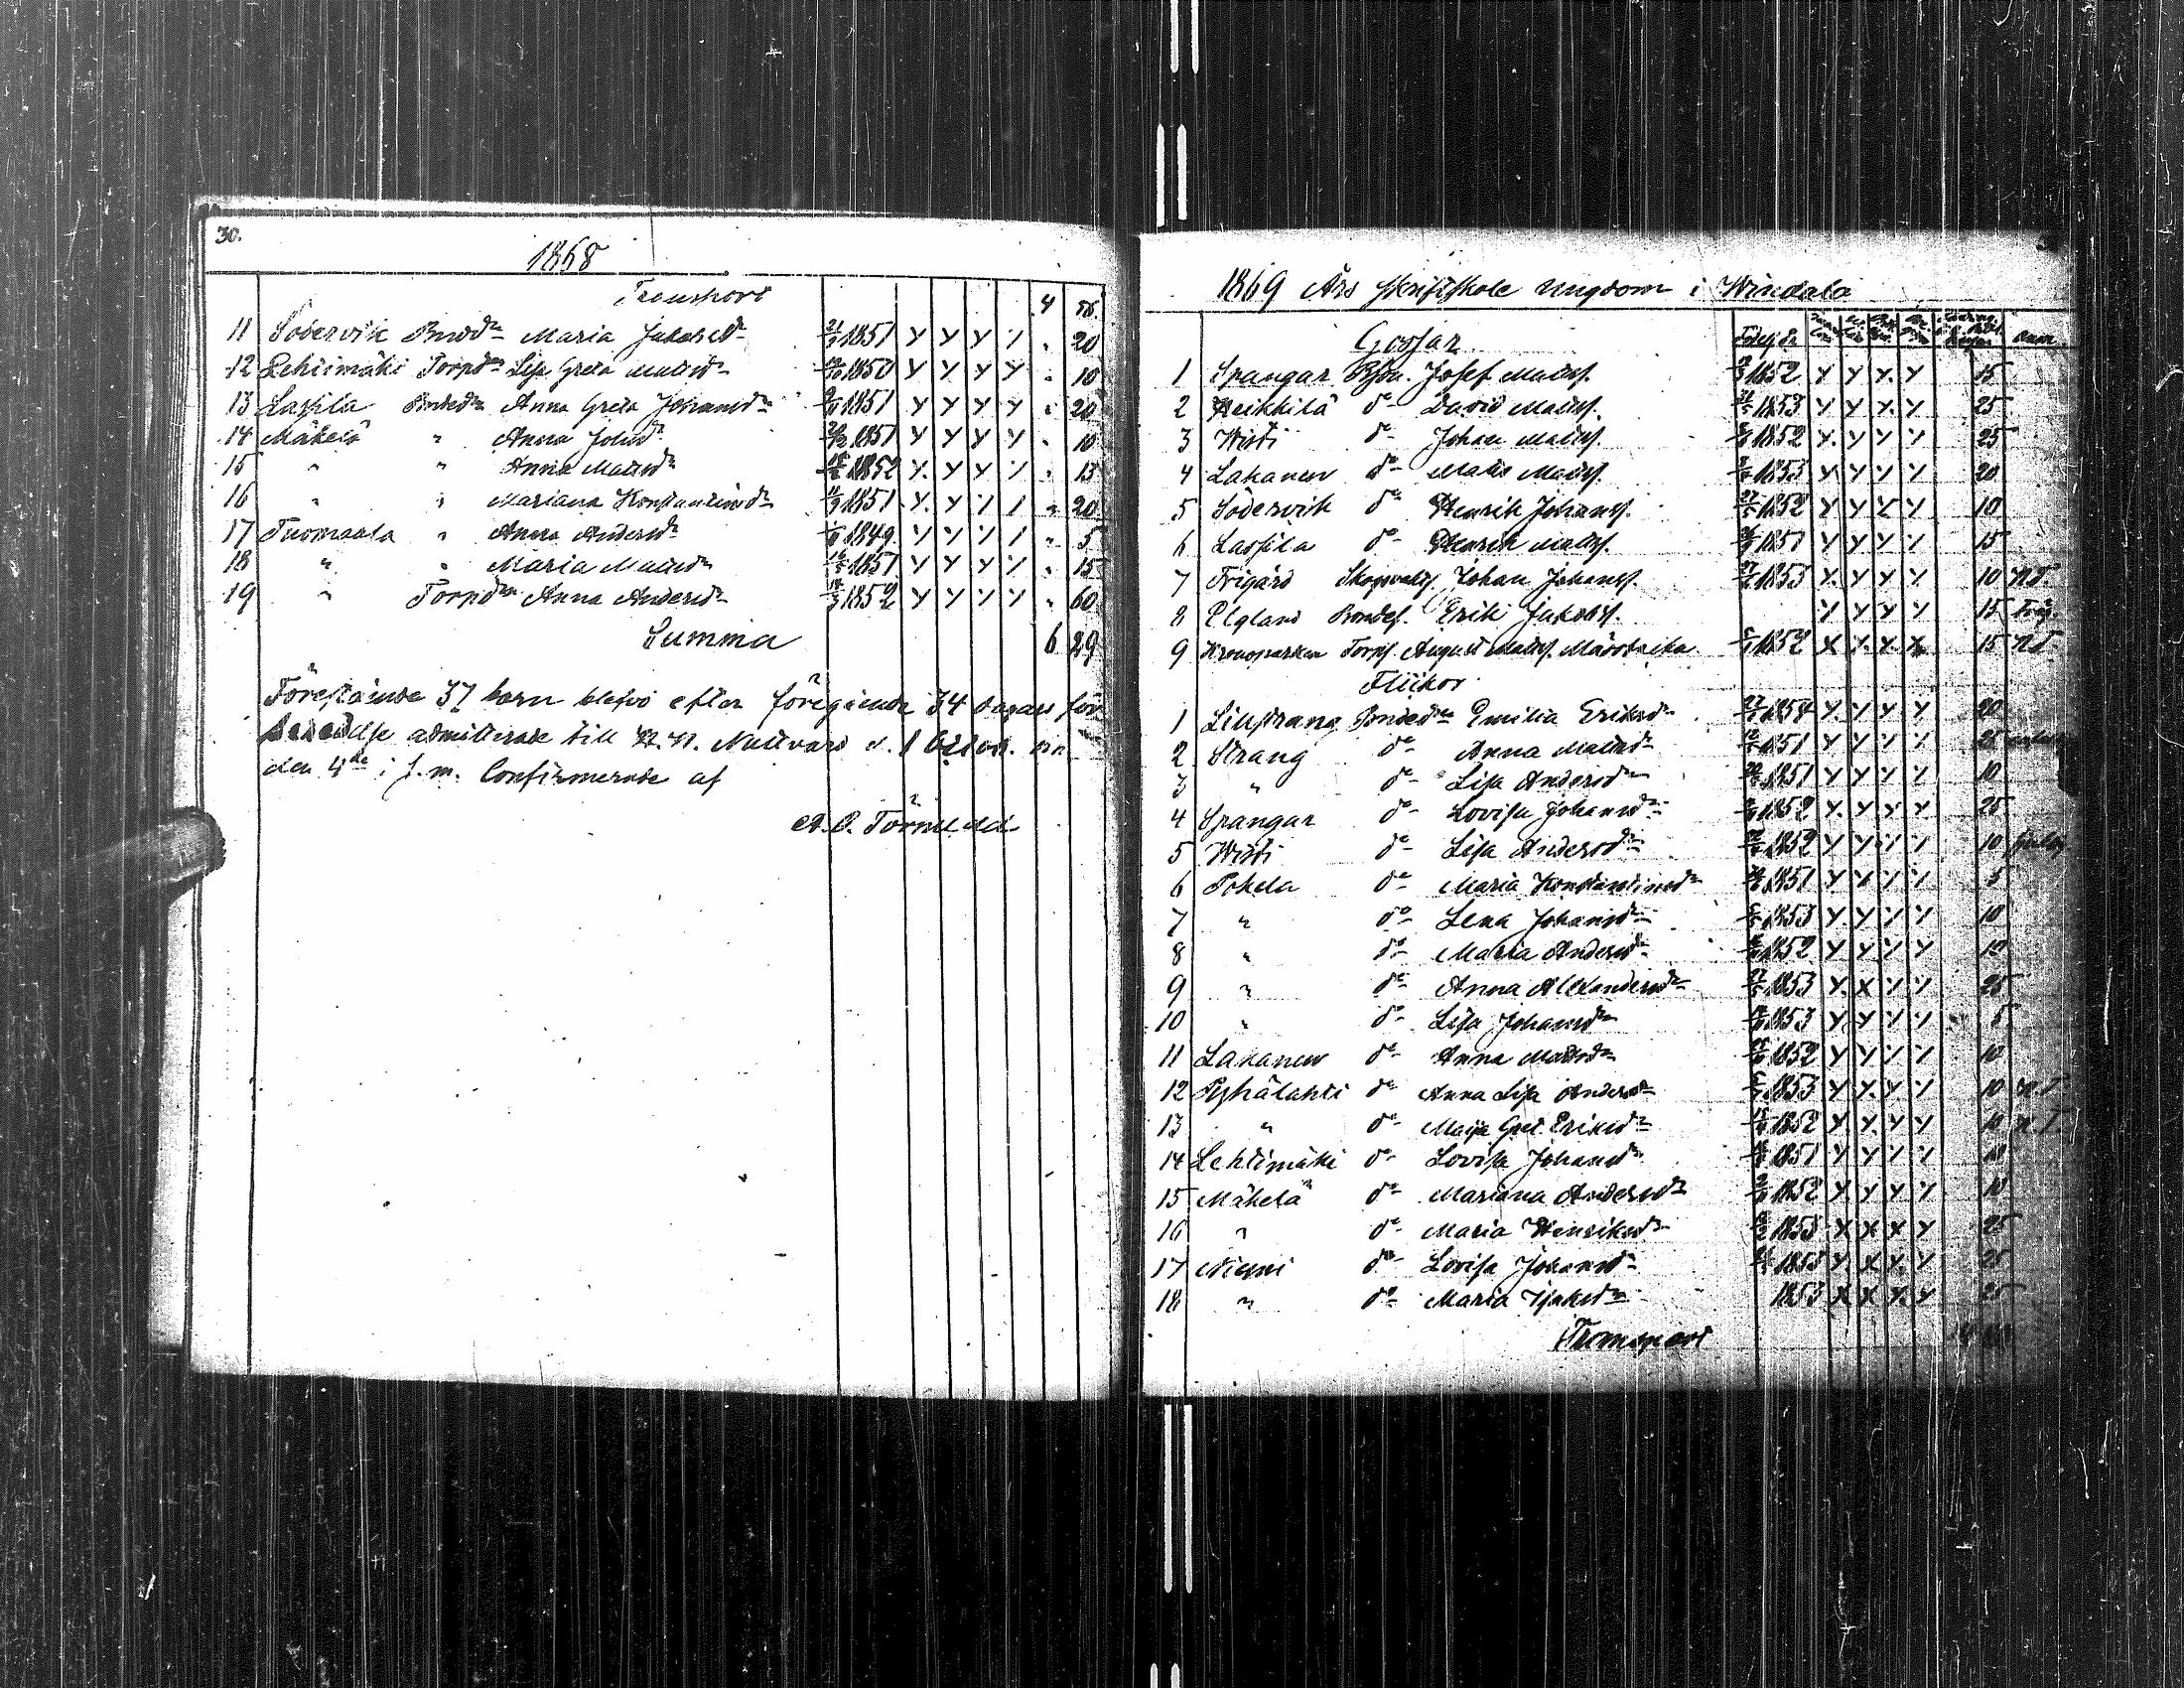 30.
1868
Transport 4
11 Södervik Bnded:r Maria Jakobsd:r 1851 Y Y Y / " 20
12 Lehtimäki Torpd:r Lisa Greta Mattsd:r 1850 Y Y Y Y " 10
13 Lassila Bnded:r Anna Greta Johansd:r 1851 Y Y Y Y " 20
14 Mäkelä " Anna Johsd:r 1851 Y Y Y Y " 10
15 " " Anna Mattsd:r 1852 Y Y Y / " 13
16 " " Mariana Konstantinsd:r 1851 Y Y / / " 20
17 Tuomaala " Anna Andersd:r 1849 Y Y / / " 5
18 " " Maria Mattsd:r 1851 Y Y Y / " 15
19 " Torpd:r Anna Andersd:r 1852 Y Y / / " 60
Summa 6 29
Förestående 37 barn blefvo efter föregående 34 dagars för
beredelse admitterade till H. H. Nattvard d. 1 Octob. och
den 4de i s. m. Confirmerade af
A. O. Törnudd
1869 Års Skriftskole Ungdom i Windala
Gossar
1 Spangar Bson. Josef Matts. 1852 Y Y Y Y 15
2 Heikkilä do David Matts. 1853 Y Y Y Y 25
3 Wisti do Johan Matts. 1852 Y Y Y / 25
4 Lahanen do Matts Matts. 1853 Y Y Y / 20
5 Södervik do Henrik Johans. 1852 Y Y Y / 10
6 Lassila do Henrik Matts. 1851 Y Y Y / 15
7 Frigård Johan Johans. 1853 Y Y Y / 10 N.T.
8 Elgland Bondes. Erik Jakobs. Y Y Y / 15
9 Kronoparken Torps. August Matts. 1852 X Y Y X 15 N.T.
Flickor
1 Linstrang Bnded:r Emilia Eriksd:r 1854 Y Y Y Y 20
2 Strang do Anna Mattsd:r 1851 Y Y / / 25
3 " do Lisa Andersd:r 1851 Y Y / / 10
4 Spangar do Lovisa Johansd:r 1852 Y Y Y Y 25
5 Wisti do Lisa Andersd:r 1852 Y Y / / 10
6 Pokela do Maria Konstantinsd:r 1851 Y Y / / 5
7 " do Lena Johansd:r 1853 Y Y / / 10
8 " do Maria Andersd:r 1852 Y Y Y Y 10
9 " do Anna Alexandersd:r 1853 Y X / / 25
10 " do Lisa Johansd:r 1853 Y Y / / 5
11 Lahanen do Anna Mattsd:r 1852 Y Y / / 10
12 Pyhälahti do Anna Lisa Andersd:r 1853 Y Y Y / 10 N.T.
13 " do Maja Gret. Eriksd:r 1852 Y Y Y Y 10 N.T.
14 Lehtimäki do Lovisa Johansd:r 1851 Y Y / / 10
15 Mäkelä do Mariana Andersd:r 1852 Y Y Y Y 10
16 " do Maria Henriksd:r 1853 X X X Y 25
17 Niemi do Lovisa Johansd:r 1853 Y X Y Y 25
18 " do Maria Isaksd:r 1853 X X Y Y 25
Transport